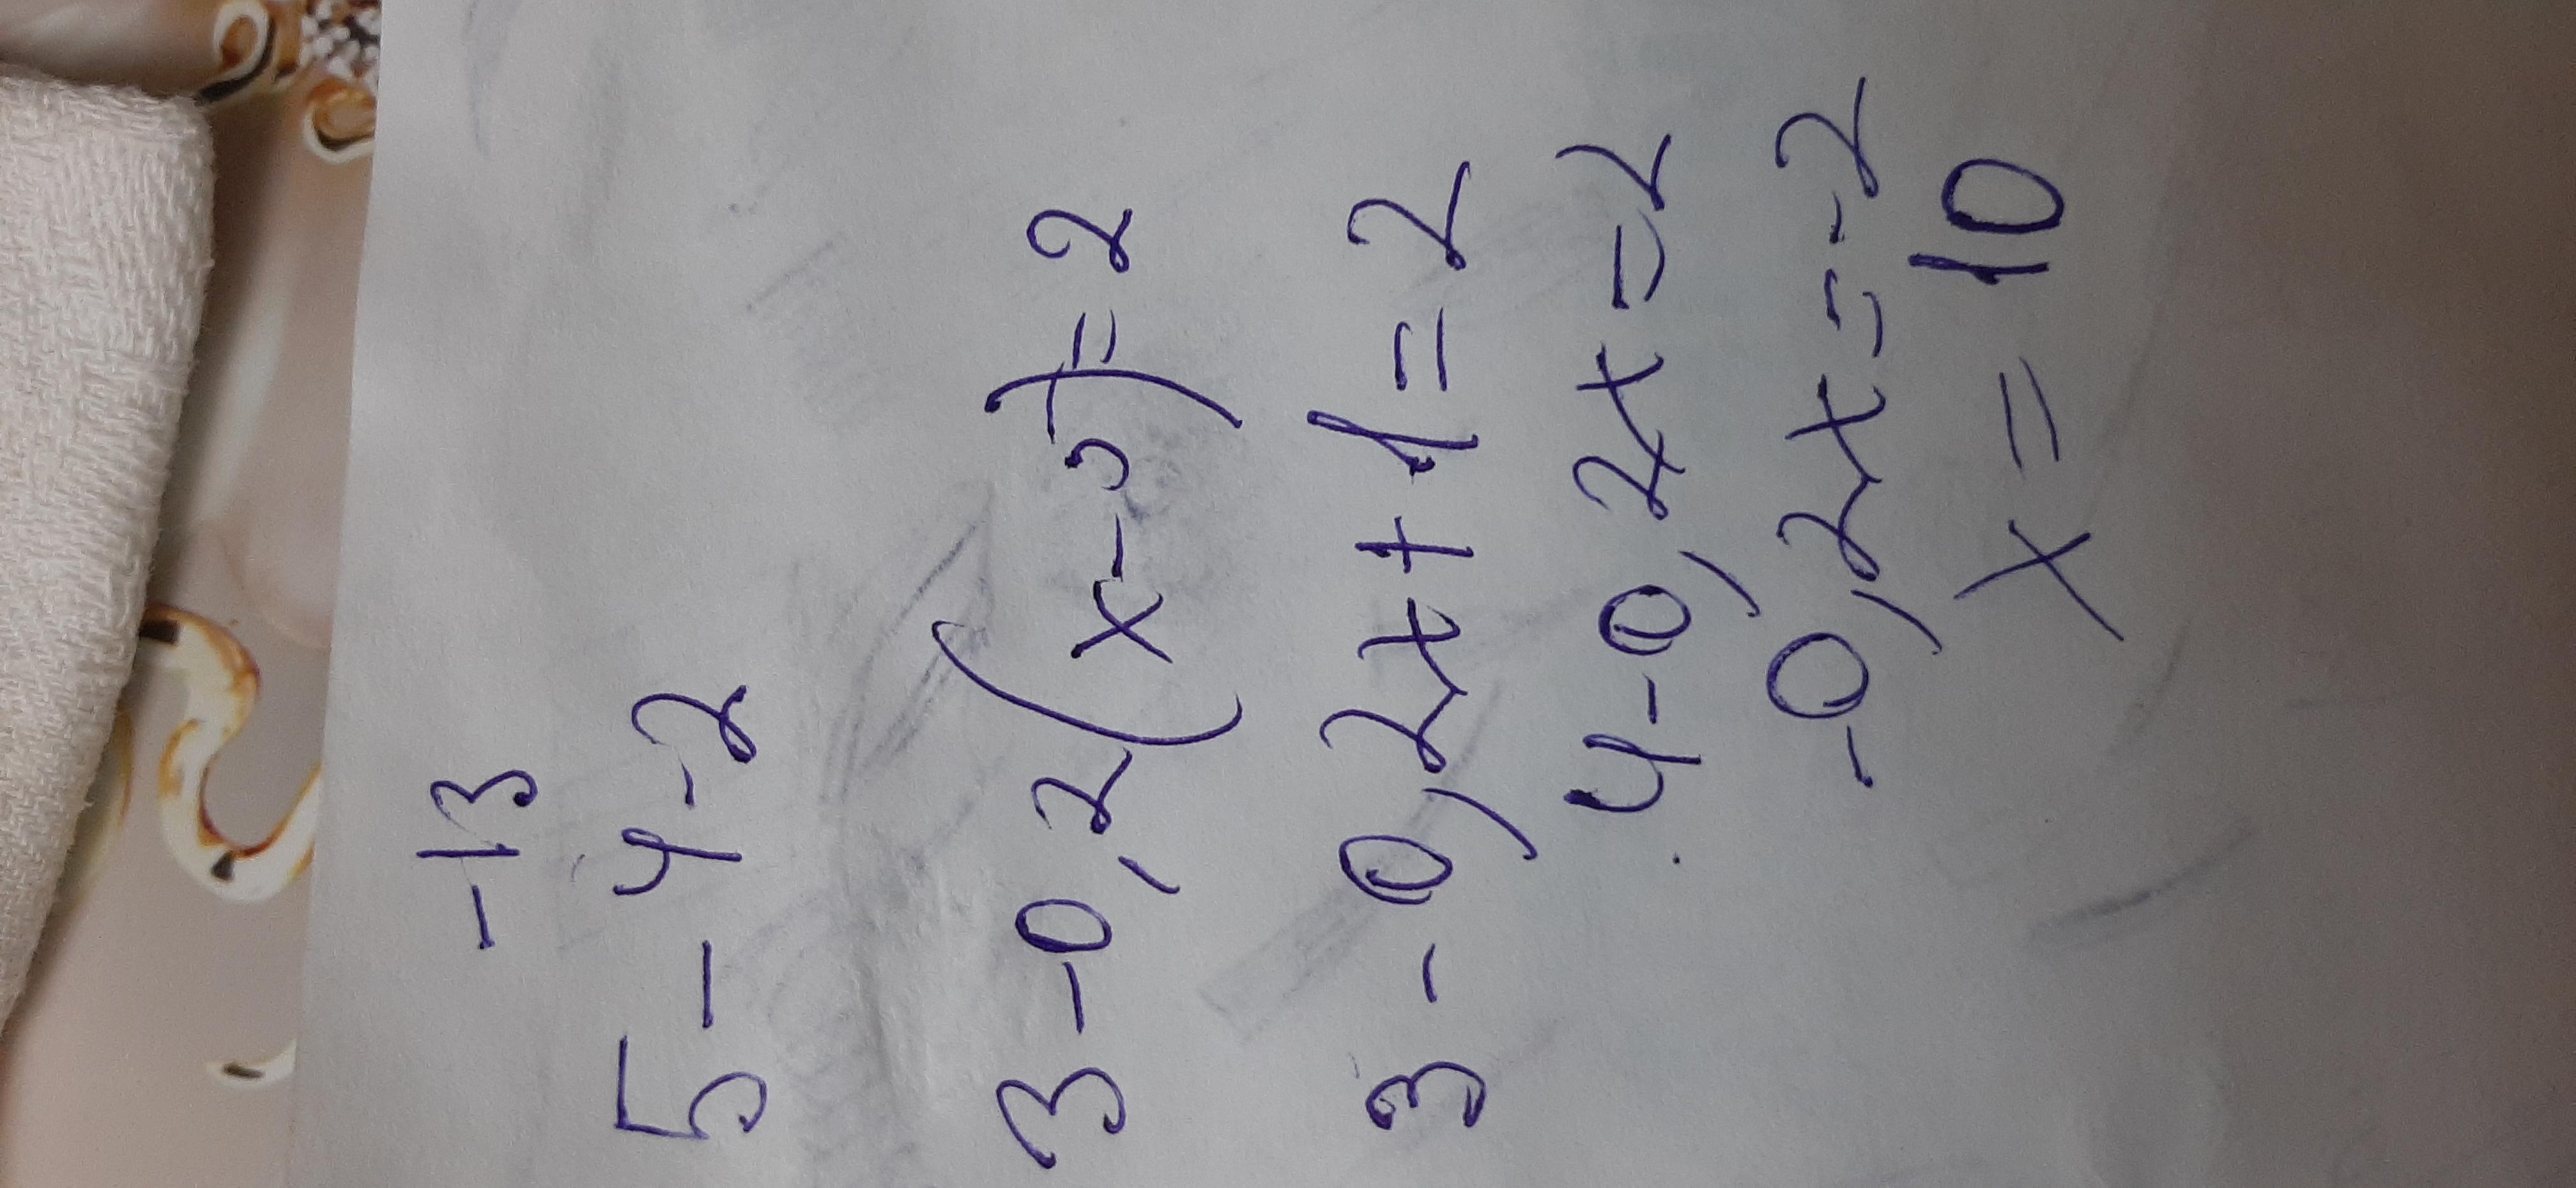 -13
5-4-2
3-0,2(x-5)=2
3-0,2x+1=2
4-0,2x=2
-0,2x=-2
x=10